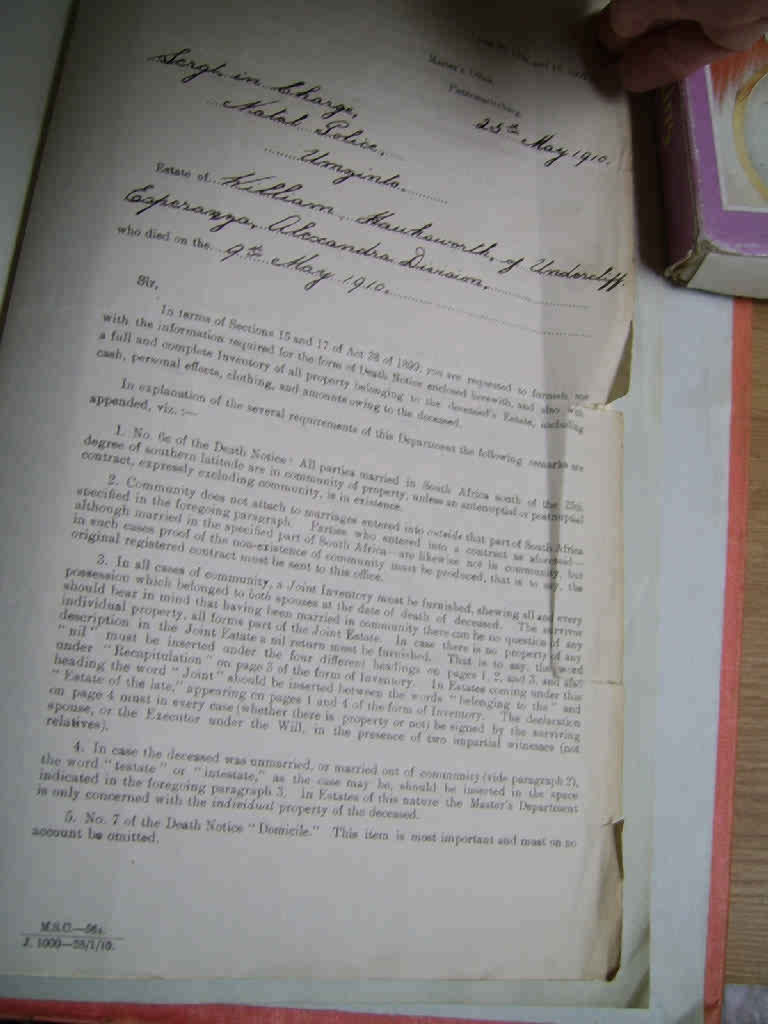 Master's Office,
Pietermaritzburg
25th May 1910.
Sergt. in Charge,
Natal Police,
Umzinto.
Estate of William Hawksworth, of Undercliff,
Esperanza, Alexandra Division,
who died on the 9th May 1910.
Sir,
In terms of Sections 15 and 17 of Act 38 of 1899, you are requested to furnish me
with the information required for the form of Death Notice enclosed herewith, and also with
a full and complete Inventory of all property belonging to the deceased's Estate, including
cash, personal effects, clothing, and amounts owing to the deceased.
In explanation of the several requirements of this Department the following remarks are
appended, viz. :—
1. No. 6c of the Death Notice: All parties married in South Africa south of the 25th
degree of southern latitude are in community of property, unless an antenuptial or postnuptial
contract, expressly excluding community, is in existence.
2. Community does not attach to marriages entered into outside that part of South Africa
specified in the foregoing paragraph. Parties who entered into a contract as aforesaid—
although married in the specified part of South Africa—are likewise not in community, but
in such cases proof of the non-existence of community must be produced, that is to say, the
original registered contract must be sent to this office.
3. In all cases of community, a Joint Inventory must be furnished, shewing all and every
possession which belonged to both spouses at the date of death of deceased. The survivor
should bear in mind that having been married in community there can be no question of any
individual property, all forms part of the Joint Estate. In case there is no property of any
description in the Joint Estate a nil return must be furnished. That is to say, the word
"nil" must be inserted under the four different headings on pages 1, 2, and 3, and also
under "Recapitulation" on page 3 of the form of Inventory. In Estates coming under this
heading the word "Joint" should be inserted between the words "belonging to the" and
"Estate of the late," appearing on pages 1 and 4 of the form of Inventory. The declaration
on page 4 must in every case (whether there is property or not) be signed by the surviving
spouse, or the Executor under the Will, in the presence of two impartial witnesses (not
relatives).
4. In case the deceased was unmarried, or married out of community (vide paragraph 2),
the word "testate" or "intestate," as the case may be, should be inserted in the space
indicated in the foregoing paragraph 3. In Estates of this nature the Master's Department
is only concerned with the individual property of the deceased.
5. No. 7 of the Death Notice "Domicile." This item is most important and must on no
account be omitted.
M.S.C.—56a.
J. 1000—28/1/10.